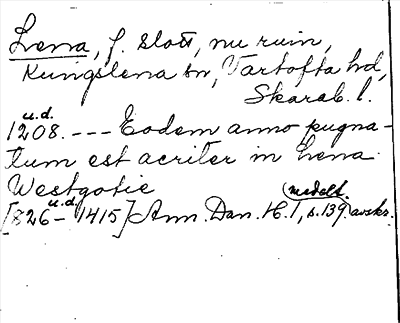 Lena, f. slott, nu ruin,
Kungslena sn, Vartofta hd,
Skarab. l.
u.d.
1208. --- Eodem anno pugna-
tum est acriter in Lena
Westgotie
u.d. medelt.
[826 - 1415] Ann. Dan. H. 1, s. 139. avskr.